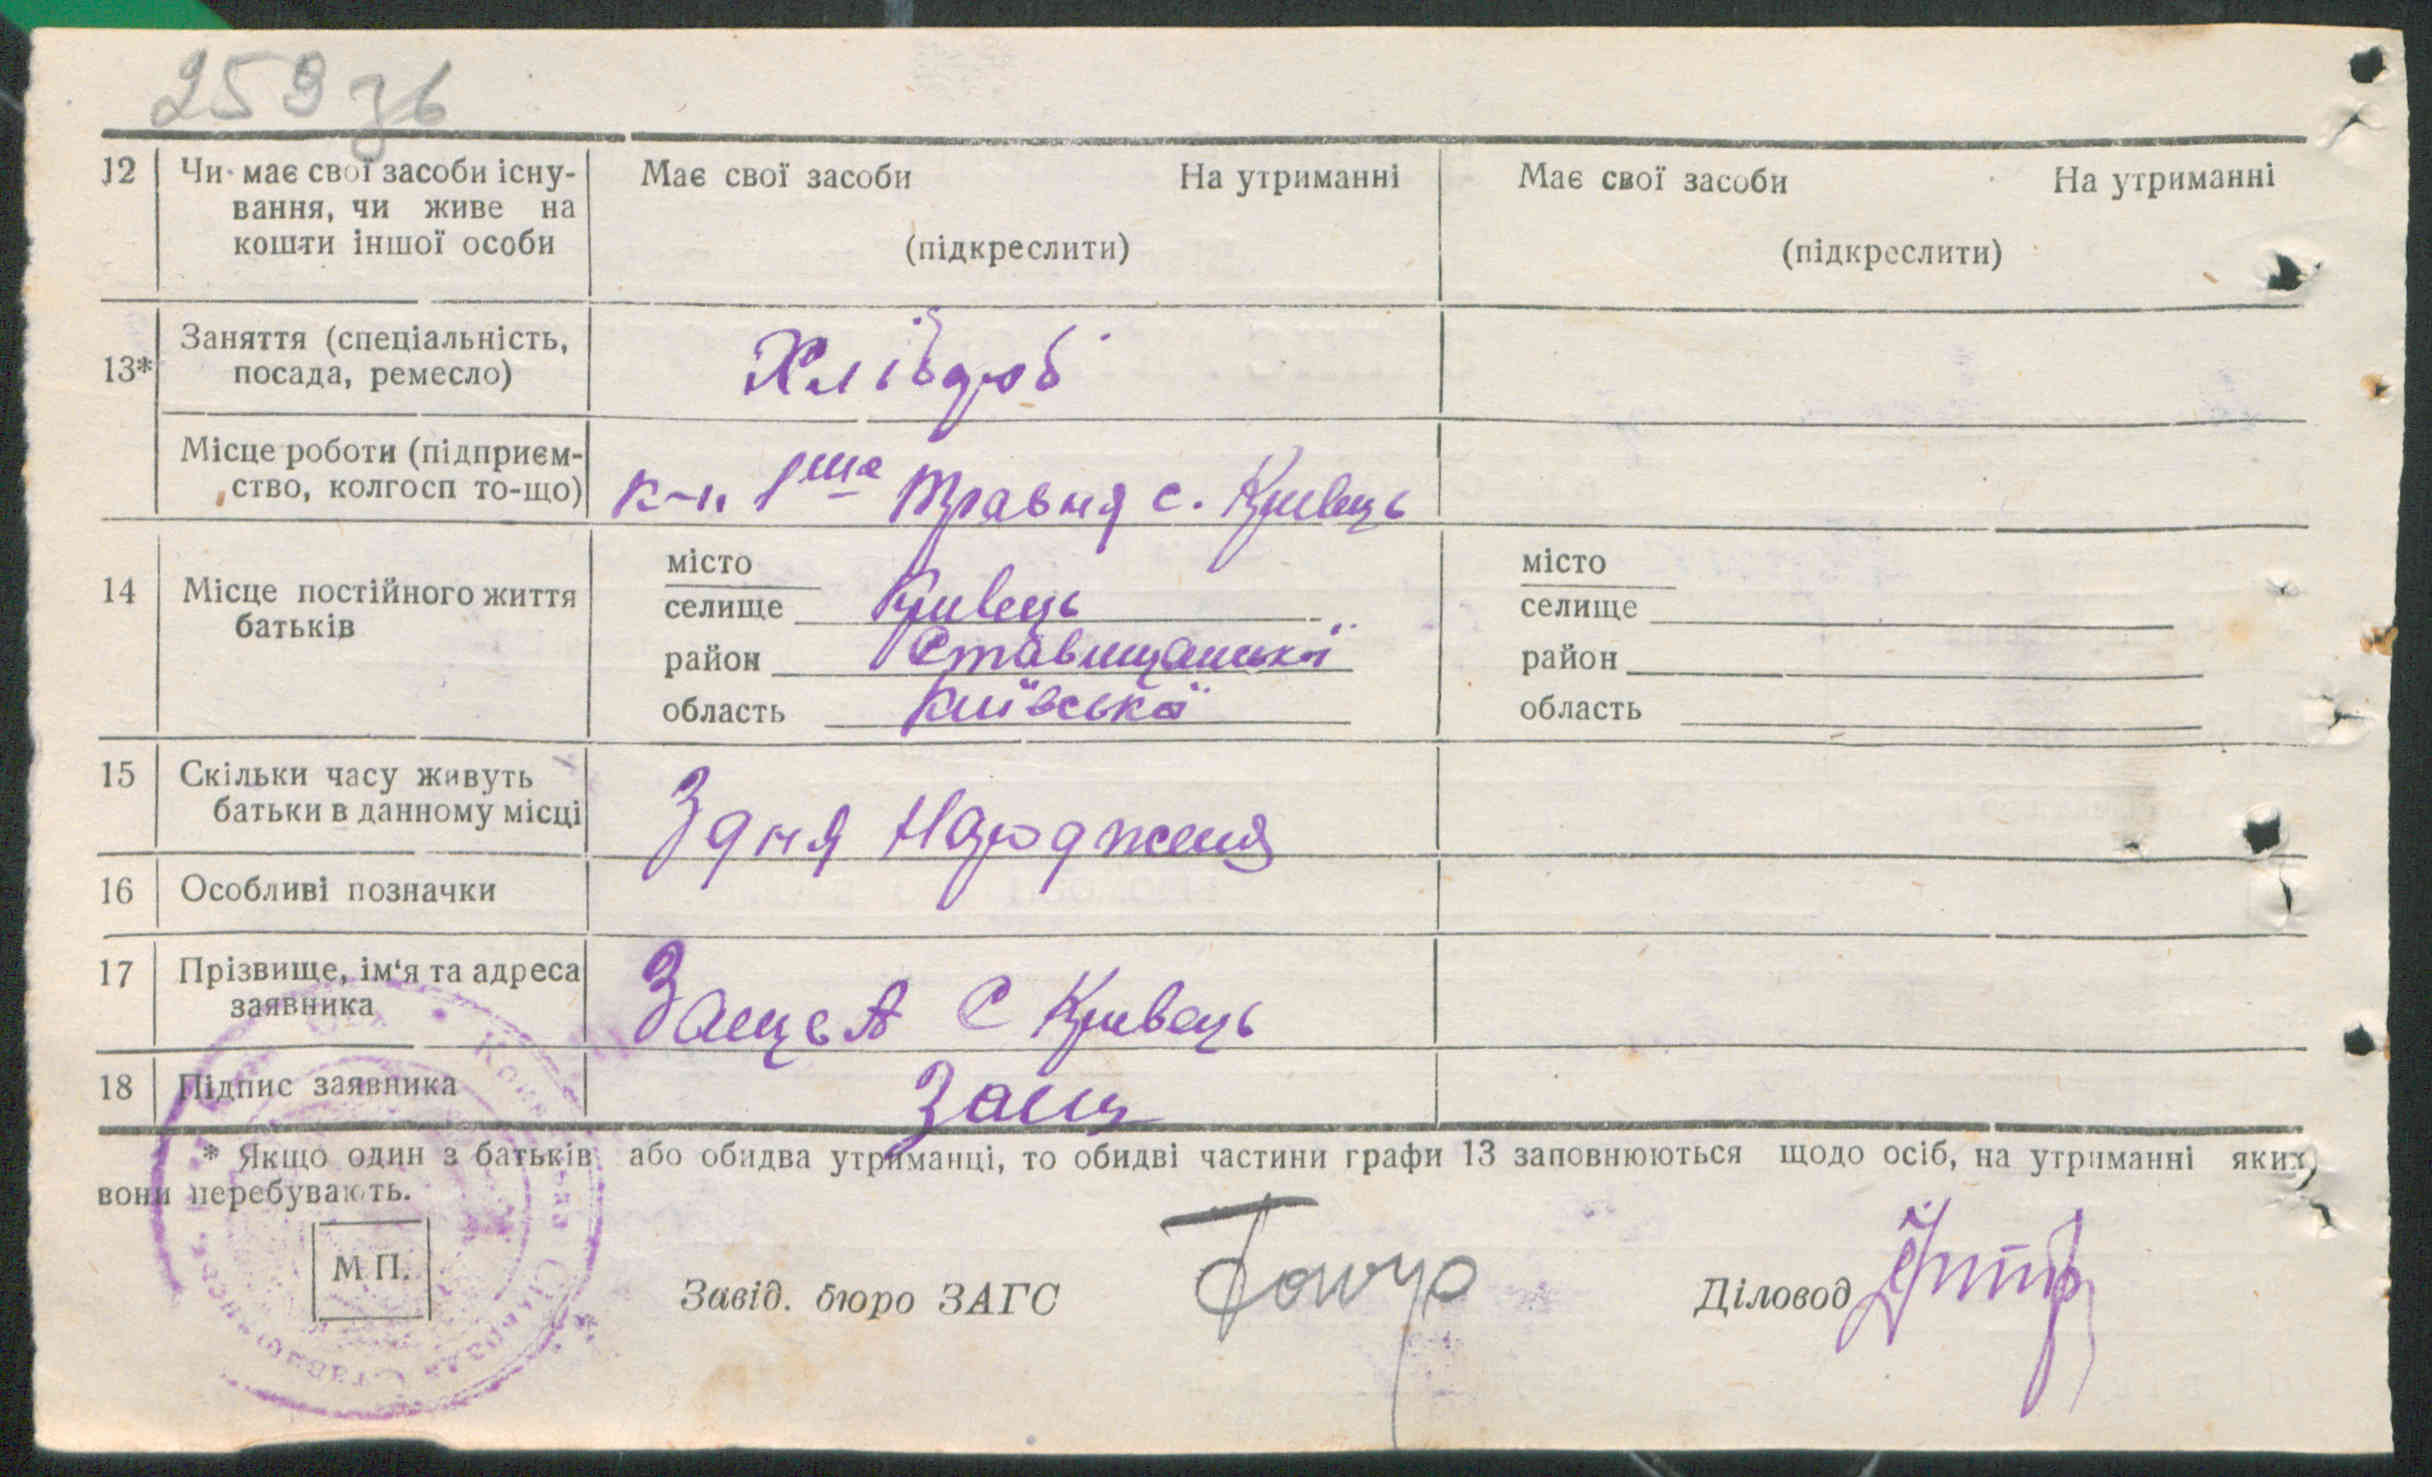 259 зв
12 Чи має свої засоби існу- Має свої засоби На утриманні Має свої засоби На утриманні
вання, чи живе на
кошти іншої особи (підкреслити) (підкреслити)
13* Заняття (спеціальність,
посада, ремесло) Хлібороб
Місце роботи (підприєм-
ство, колгосп то-що) к-п 1ша Травня с. Кривець
14 Місце постійного життя
батьків
місто місто
селище Кривець селище
район Ставищанської район
область Київської область
15 Скільки часу живуть
батьки в данному місці З дня народженя
16 Особливі позначки
17 Прізвище, ім'я та адреса
заявника Заяць А С Кривець
18 Підпис заявника Заяц
* Якщо один з батьків або обидва утриманці, то обидві частини графи 13 заповнюються щодо осіб, на утриманні яких
вони перебувають.
М П.
Завід. бюро ЗАГС Діловод